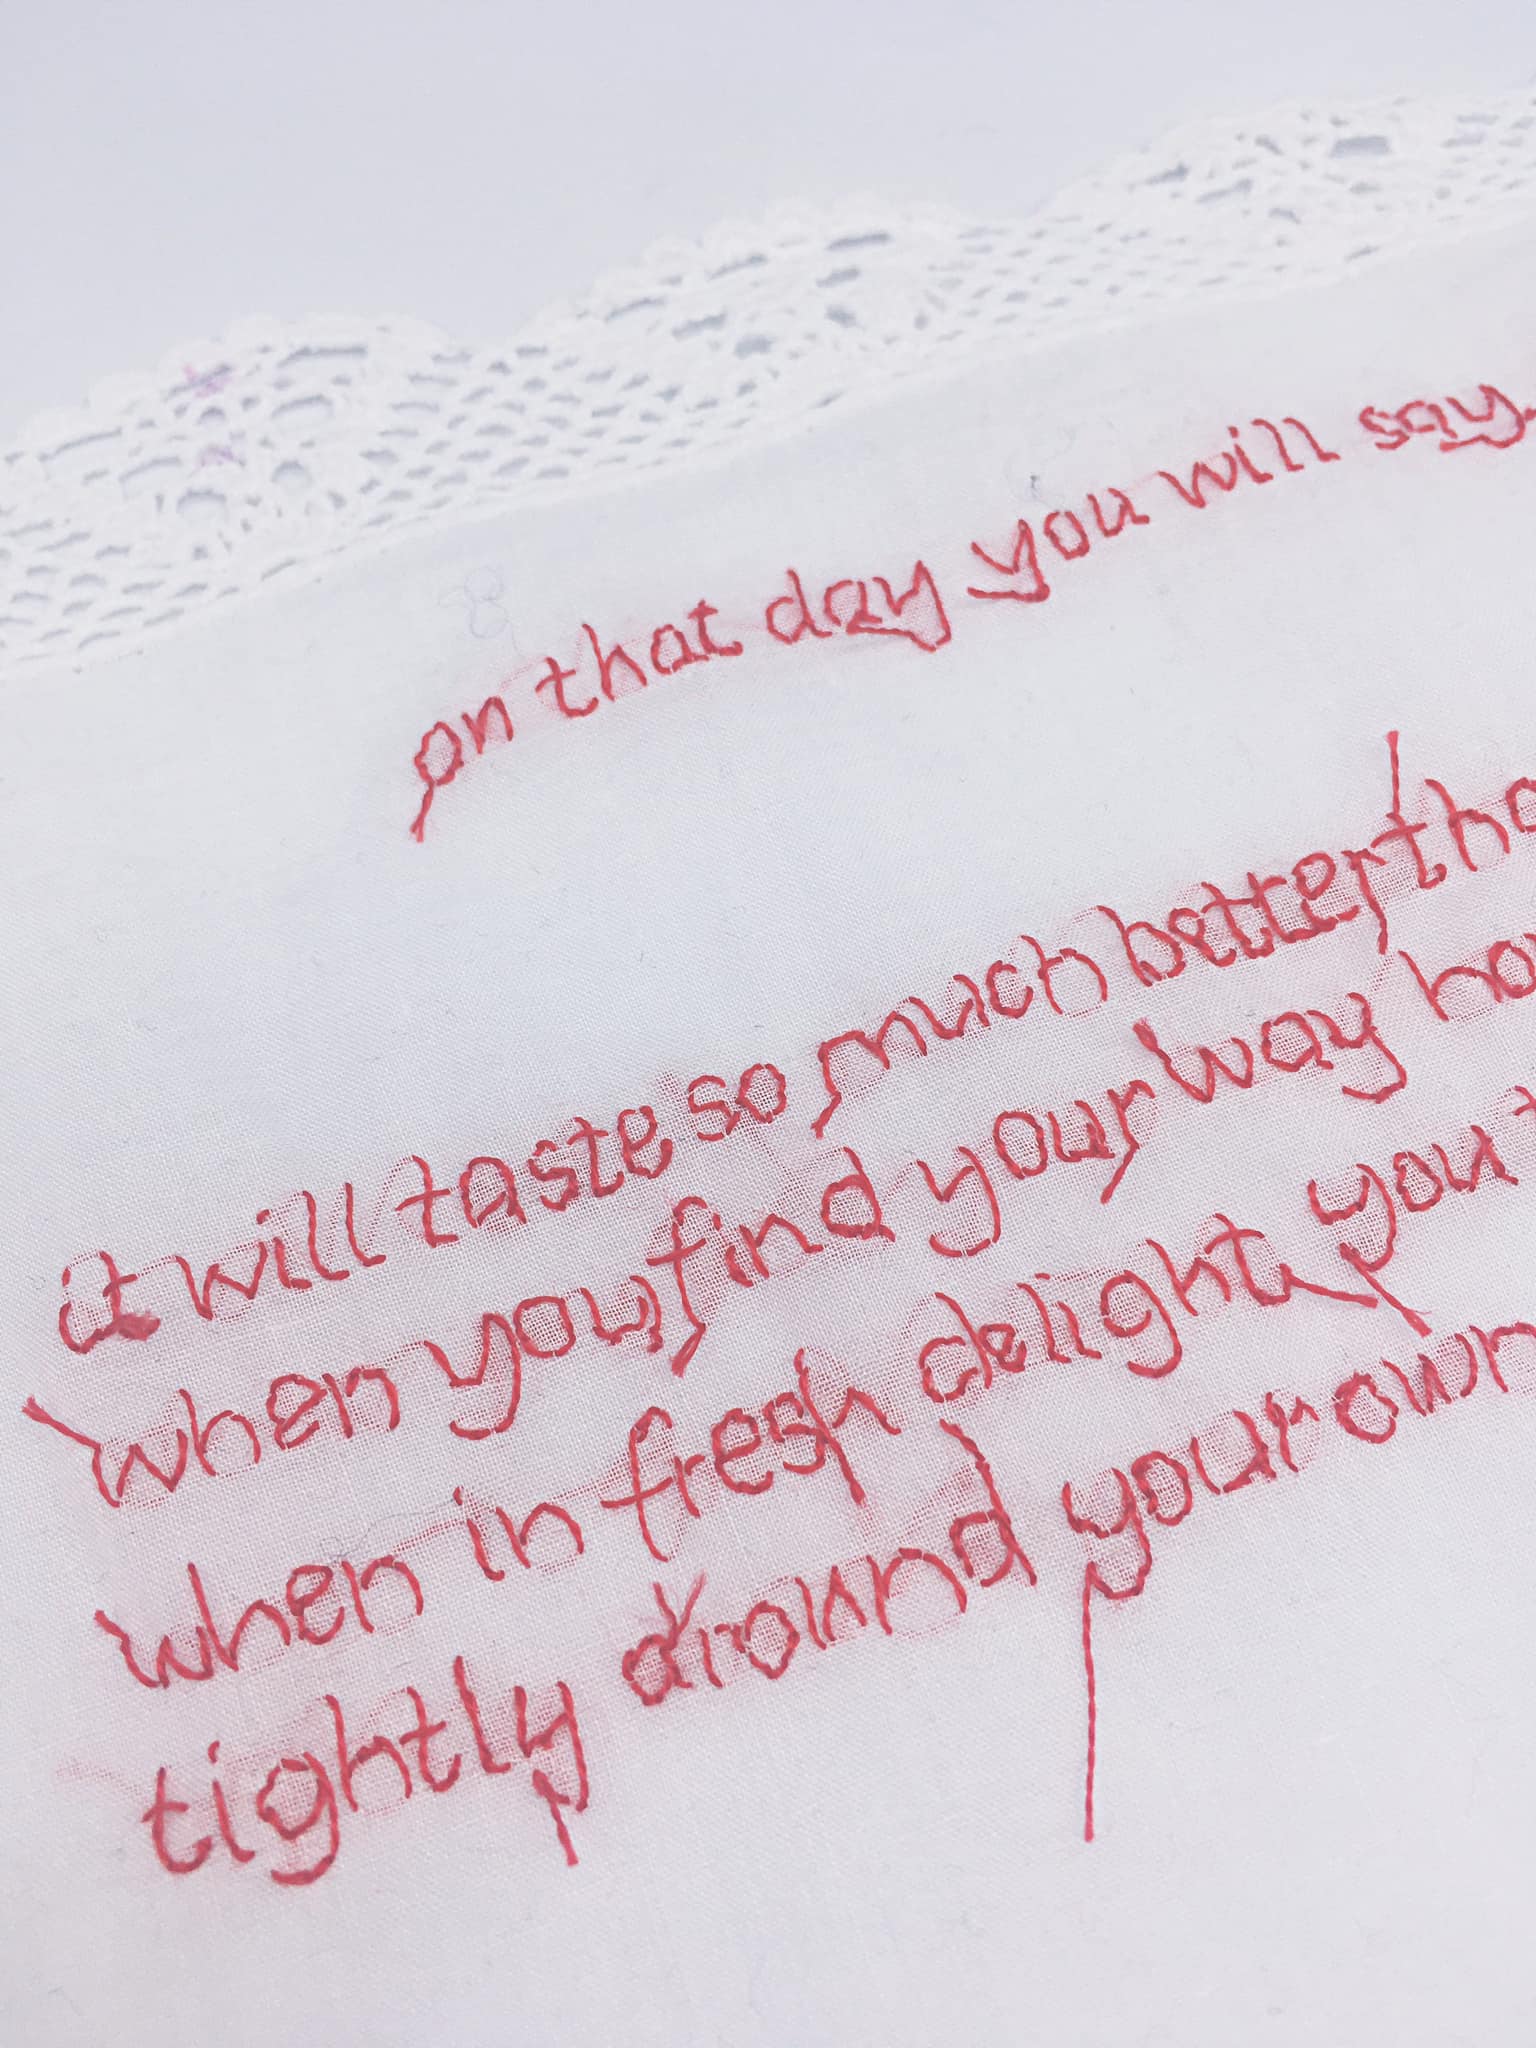 on that day you will say
it will taste so much better tha
when you find your way ho
when in fresh delight you t
tightly around your own